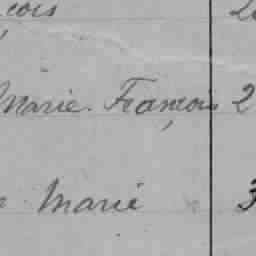 çois 2
Marie François 2
Marie 3